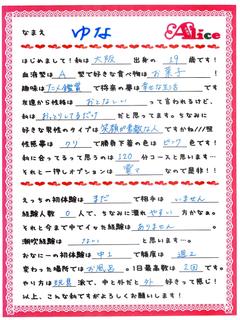 なまえ ゆな Alice
はじめまして！私は 大阪 出身の 19 歳です！
血液型は A 型で好きな食べ物は お菓子 ！
趣味は 人間鑑賞 で将来の夢は 幸せな生活 です
友達から性格は おとなしい って言われるけど、
私は おっとりしてるだけ だと思ってます。ちなみに
好きな男性のタイプは 笑顔が素敵な人 ですかね///性
性感帯は クリ で勝負下着の色は ピンク 色です！
私に会ってるって思うのは 120 分コースと思います…
それと一押しオプションは 電マ なので是非！！
えっちの初体験は まだ で相手は いません
経験人数 0 人で、ちなみに濡れ やすい 方かなぁ。
それと今まで中でイッた経験は ありません 。
潮吹経験は ない と思います…。
変わった場所では お風呂 。1日最高数は 2回 です。
やり方は 玩具 派で、中と外だと 外 好きって感じ！
以上、こんな私ですがよろしくお願いします！